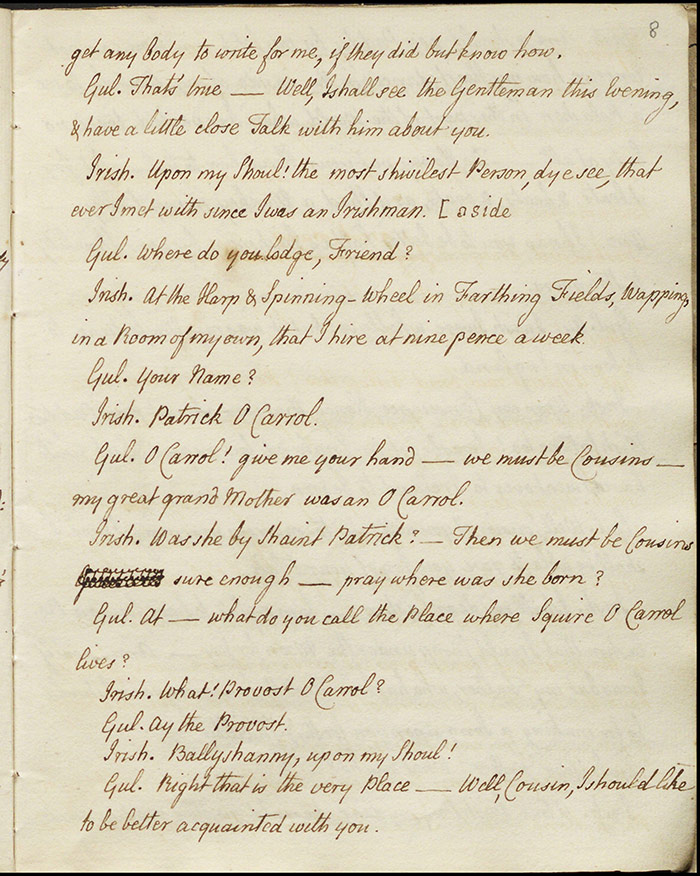 8
get any body to write for me, if they did but know how.
Gul. That's true — Well, I shall see the Gentleman this Evening,
& have a little close Talk with him about you.
Irish. Upon my Shoul! the most shivilest Person, dye see, that
ever I met with since I was an Irishman. [aside
Gul. Where do you lodge, Friend?
Irish. At the Harp & Spinning-Wheel in Farthing Fields, Wapping,
in a Room of my own, that I hire at nine pence a week.
Gul. Your Name?
Irish. Patrick O Carrol.
Gul. O Carrol! give me your hand — we must be Cousins —
my great grand Mother was an O Carrol.
Irish. Was she by Shaint Patrick? — Then we must be Cousins
sure enough — pray where was she born?
Gul. At — what do you call the Place where Squire O Carrol
lives?
Irish. What! Provost O Carrol?
Gul. Ay the Provost.
Irish. Ballyshanny, upon my Shoul!
Gul. Right that is the very Place — Well, Cousin, I should like
to be better acquainted with you.